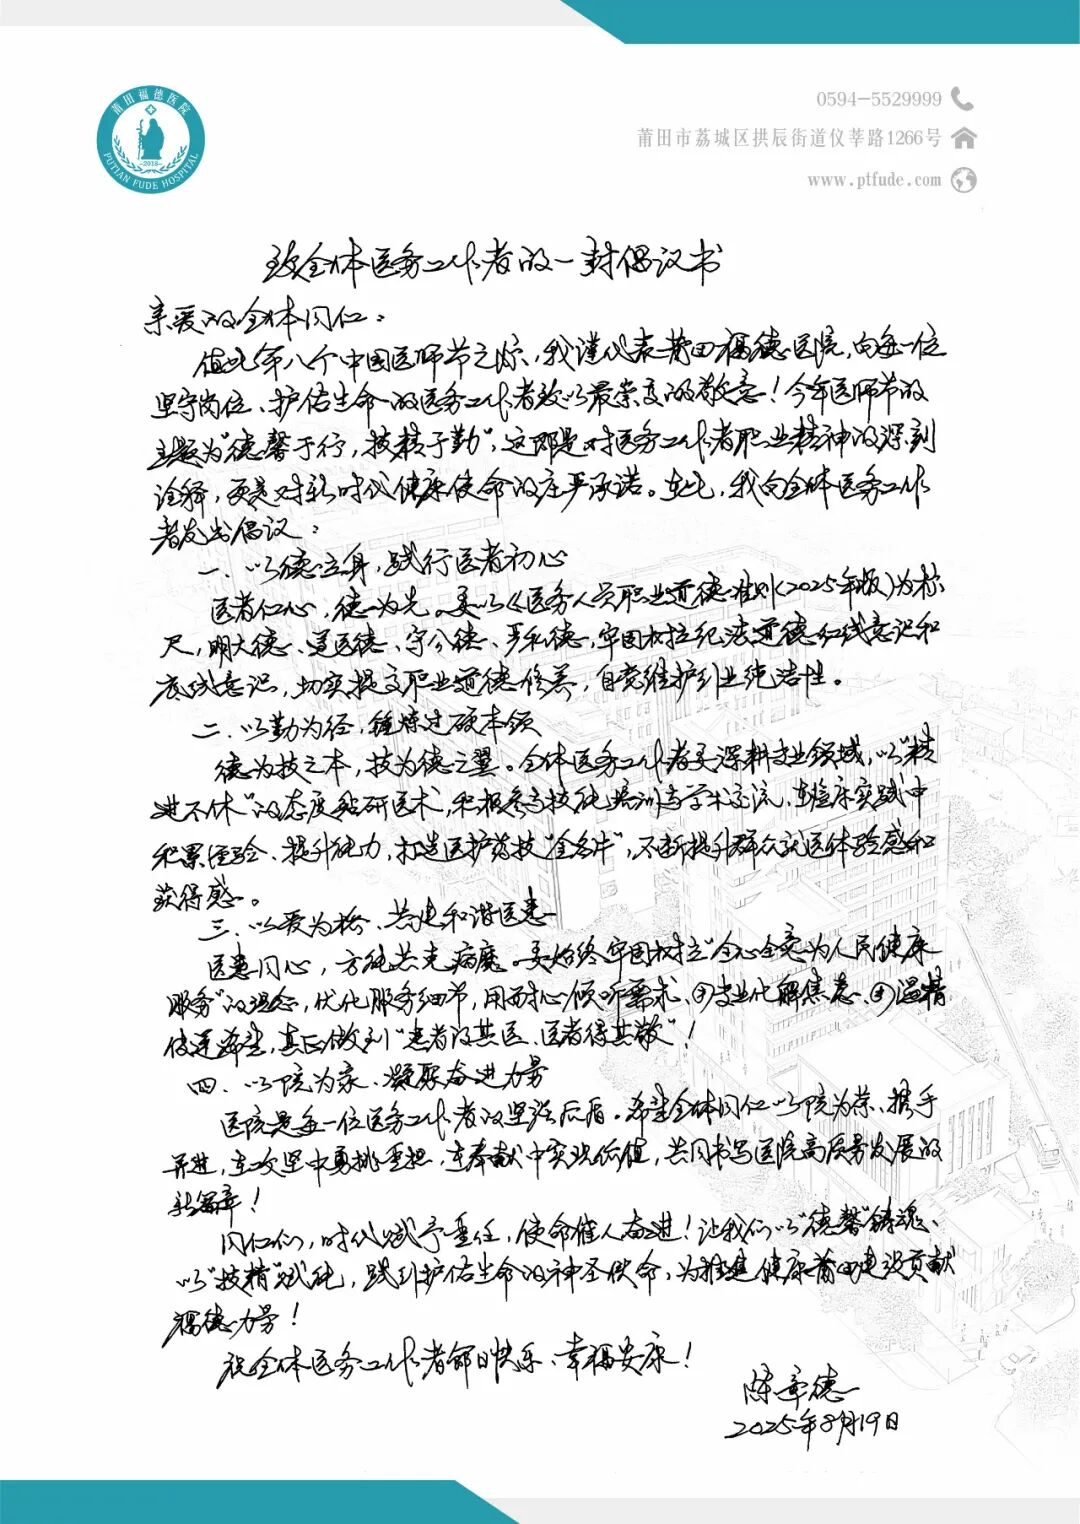 莆田福德医院
PUTIAN FUDE HOSPITAL
-2018-
0594-5529999
莆田市荔城区拱辰街道仪莘路1266号
www.ptfude.com
致全体医务工作者的一封倡议书
亲爱的全体同仁：
值此第八个中国医师节之际，我谨代表莆田福德医院，向每一位
坚守岗位、护佑生命的医务工作者致以最崇高的敬意！今年医师节的
主题为“德馨于行，技精于勤”，这既是对医务工作者职业精神的深刻
诠释，更是对新时代健康使命的庄严承诺。在此，我向全体医务工作
者发出倡议：
一、以德立身，践行医者初心
医者仁心，德为先。要以《医务人员职业道德准则(2025年版)》为标
尺，明大德、尊医德、守公德、严私德，牢固树立纪法道德红线意识和
底线意识，切实提高职业道德修养，自觉维护行业纯洁性。
二、以勤为径，锤炼过硬本领
德为技之本，技为德之翼。全体医务工作者要深耕专业领域，以“精
进不休”的态度钻研医术，积极参与技能培训与学术交流，在临床实践中
积累经验、提升能力，打造医护药技“金名片”，不断提升群众就医体验感和
获得感。
三、以爱为桥、共建和谐医患
医患同心，方能共克病魔。要始终牢固树立“全心全意为人民健康
服务”的理念，优化服务细节，用耐心倾听需求、用专业化解焦虑、用温情
传递希望，真正做到“患者得其医、医者得其敬”！
四、以院为家、凝聚奋进力量
医院是每一位医务工作者的坚强后盾。希望全体同仁以院为荣、携手
并进，在攻坚中勇挑重担，在奉献中实现价值，共同书写医院高质量发展的
新篇章！
同仁们，时代赋予重任，使命催人奋进！让我们以“德馨”铸魂、
以“技精”赋能，践行护佑生命的神圣使命，为推进健康莆田建设贡献
福德力量！
祝全体医务工作者节日快乐、幸福安康！
陈章德
2025年8月19日